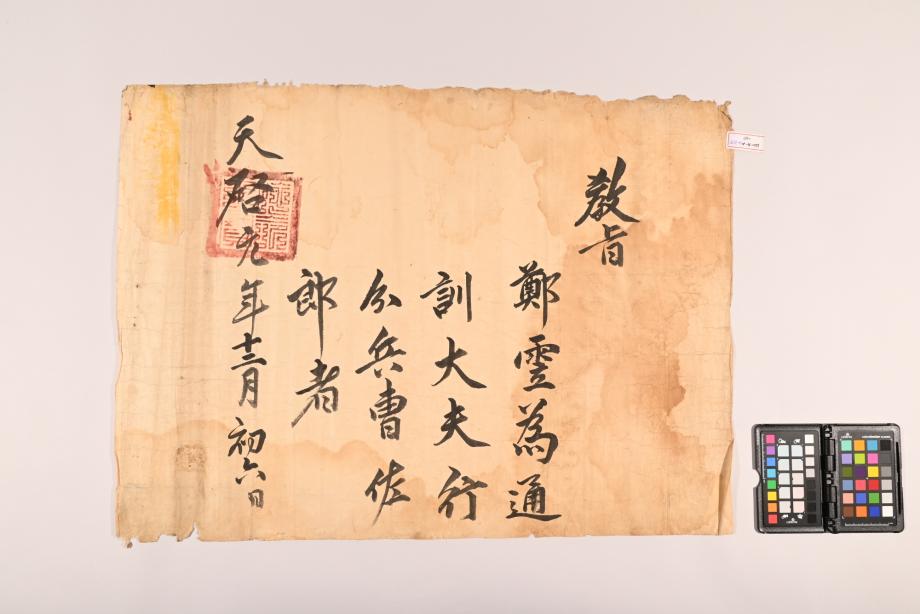 敎旨
鄭霊為通
訓大夫行
分兵曹佐
郎者
天啓元年十二月初六日